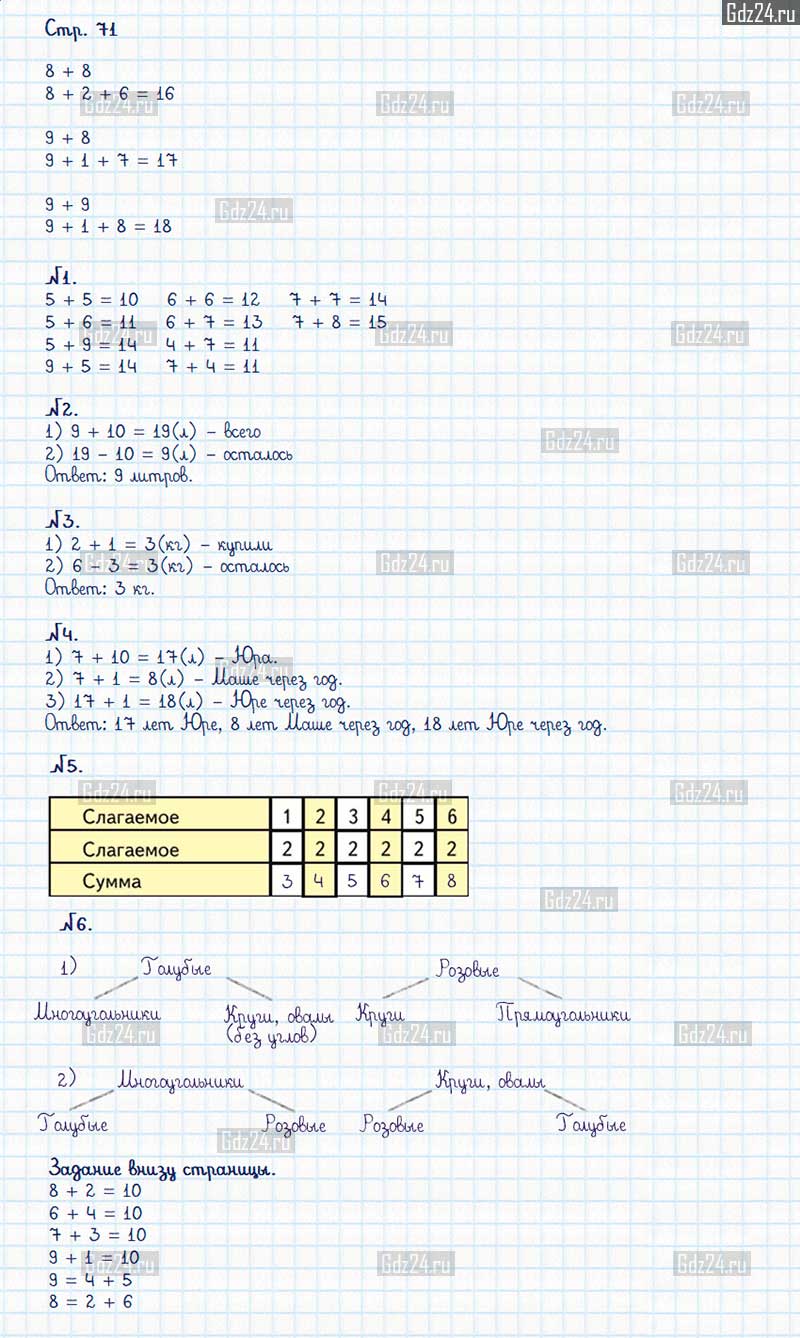 Gdz24.ru
Стр. 71
8 + 8
8 + 2 + 6 = 16
9 + 8
9 + 1 + 7 = 17
9 + 9
9 + 1 + 8 = 18
№1.
5 + 5 = 10 6 + 6 = 12 7 + 7 = 14
5 + 6 = 11 6 + 7 = 13 7 + 8 = 15
5 + 9 = 14 4 + 7 = 11
9 + 5 = 14 7 + 4 = 11
№2.
1) 9 + 10 = 19(л) - всего
2) 19 - 10 = 9(л) - осталось
Ответ: 9 литров.
№3.
1) 2 + 1 = 3(кг) - купили
2) 6 - 3 = 3(кг) - осталось
Ответ: 3 кг.
№4.
1) 7 + 10 = 17(л) - Юра.
2) 7 + 1 = 8(л) - Маше через год.
3) 17 + 1 = 18(л) - Юре через год.
Ответ: 17 лет Юре, 8 лет Маше через год, 18 лет Юре через год.
№5.
Слагаемое 1 2 3 4 5 6
Слагаемое 2 2 2 2 2 2
Сумма 3 4 5 6 7 8
№6.
1) Голубые Розовые
Многоугольники Круги, овалы Круги Прямоугольники
(без углов)
2) Многоугольники Круги, овалы
Голубые Розовые Розовые Голубые
Задание внизу страницы.
8 + 2 = 10
6 + 4 = 10
7 + 3 = 10
9 + 1 = 10
9 = 4 + 5
8 = 2 + 6